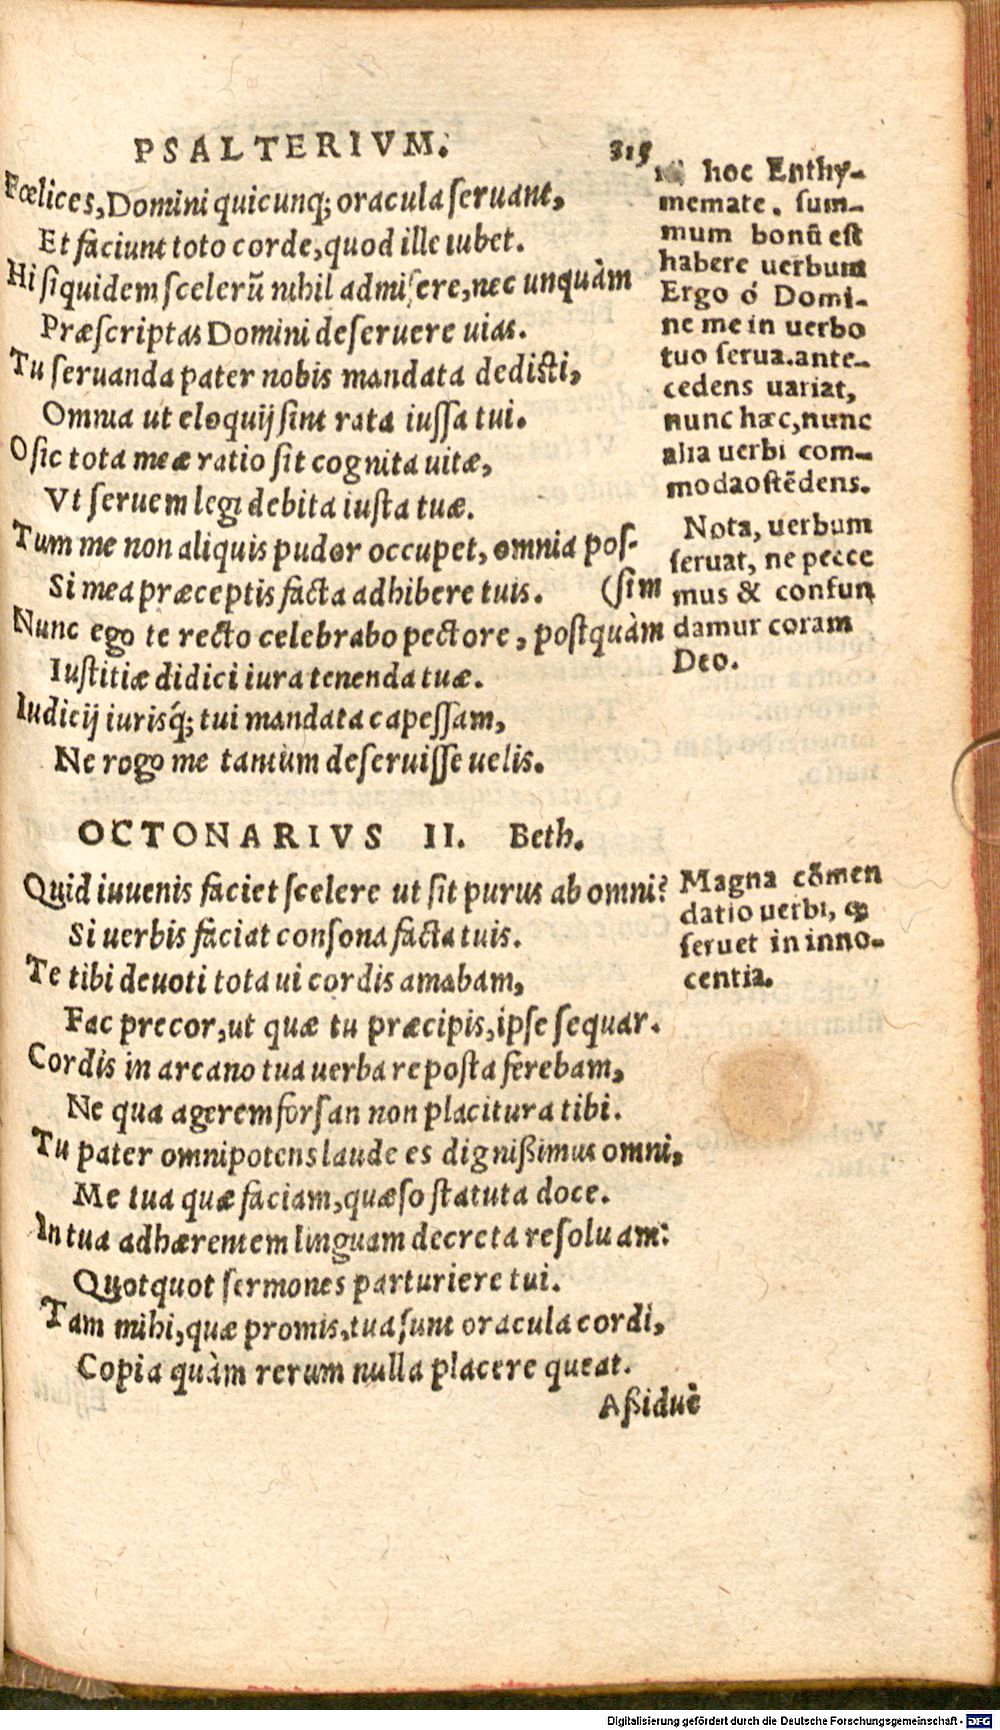 PSALTERIVM. 315
Fœlices, Domini quicunq; oracula seruant,
Et faciunt toto corde, quod ille iubet.
Hi siquidem scelerũ nihil admisere, nec unquàm
Præscriptas Domini deseruere uias.
Tu seruanda pater nobis mandata dedisti,
Omnia ut eloquij sint rata iussa tui.
O sic tota meæ ratio sit cognita uitæ,
Vt seruem legi debita iusta tuæ.
Tum me non aliquis pudor occupet, omnia pos-
Si mea præceptis facta adhibere tuis. (sim
Nunc ego te recto celebrabo pectore, postquàm
Iustitiæ didici iura tenenda tuæ.
Iudicij iurisq́; tui mandata capessam,
Ne rogo me tantùm deseruisse uelis.
hoc Enthy-
memate. sum-
mum bonũ est
habere uerbum
Ergo ó Domi-
ne me in uerbo
tuo serua. ante-
cedens uariat,
nunc hæc, nunc
alia uerbi com-
moda ostẽdens.
Nota, uerbum
seruat, ne pecce
mus & confun
damur coram
Deo.
OCTONARIVS II. Beth.
Quid iuuenis faciet scelere ut sit purus ab omni?
Si uerbis faciat consona facta tuis.
Te tibi deuoti tota ui cordis amabam,
Fac precor, ut quæ tu præcipis, ipse sequar.
Cordis in arcano tua uerba reposta ferebam,
Ne qua agerem forsan non placitura tibi.
Tu pater omnipotens laude es dignißimus omni,
Me tua quæ faciam, quæso statuta doce.
In tua adhærentem linguam decreta resoluam:
Quotquot sermones parturiere tui.
Tam mihi, quæ promis, tua sunt oracula cordi,
Copia quàm rerum nulla placere queat.
Magna cõmen
datio uerbi, q
seruet in inno-
centia.
Aßiduè
Digitalisierung gefördert durch die Deutsche Forschungsgemeinschaft - DFG